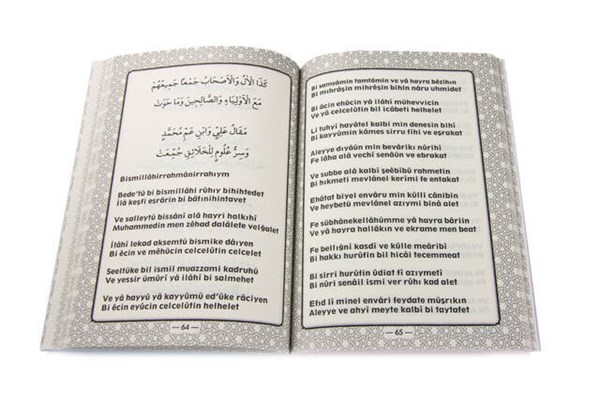 كَذَا الْاٰلِ وَالْاَصْحَابُ جَمْعًا جَمِيعُهُمْ
مَعَ الْاَوْلِيَاءِ وَالصَّالِحِينَ وَمَا حَوَتْ
مَقَالُ عَلِيٍّ وَابْنِ عَمِّ مُحَمَّدٍ
وَسِرُّ عُلُومٍ لِلْخَلَائِقِ جُمِّعَتْ
Bismillâhirrahmânirrahıym
Bede'tü bi bismillâhi rûhıy bihihtedet
İlâ keşfi esrârin bi bâtınihintavet
Ve salleytü bissânî alâ hayri halkıhî
Muhammedin men zêhad dalâlete velğalet
İlâhî lekad aksemtü bismike dâıyen
Bi êcin ve mêhûcin celcelûtin celhelet
Seeltüke bil ismil muazzami kadruhû
Ve yessir ümûrî yâ ilâhî bi salmehet
Ve yâ hayyü yâ kayyûmü ed'ûke râciyen
Bi êcin eyûcin celcelûtin helhelet
64
Bi samsâmin tamtâmin ve yâ hayra bêzihın
Bi mıhrâşin mihrêşin bihin nâru uhmidet
Bi êcin ehûcin yâ ilâhî mühevvicin
Ve yâ celcelûtin bil icâbeti helhelet
Li tuhyî hayâtel kalbi min denesin bihî
Bi kayyûmin kâmes sirru fîhi ve eşrakat
Aleyye dıyâün min bevârikı nûrihî
Fe lâha alâ vechî senâün ve ebrakat
Ve subbe alâ kalbî şeêbîbü rahmetin
Bi hikmeti mevlânel kerîmi fe entakat
Ehâtat biyel envâru min külli cânibin
Ve heybetü mevlânel azıymi binâ alet
Fe sübhânekellâhümme yâ hayra bâriin
Ve yâ hayra hallâkın ve ekrame men beat
Fe belliğnî kasdî ve külle meâribî
Bi hakkı hurûfin bil hicâi tecemmeat
Bi sirri hurûfin ûdiat fî azıymetî
Bi nûri senâil ismi ver rûhı kad alet
Efıd lî minel envâri feydate müşrıkın
Aleyye ve ahyi meyte kalbî bi taytafet
65